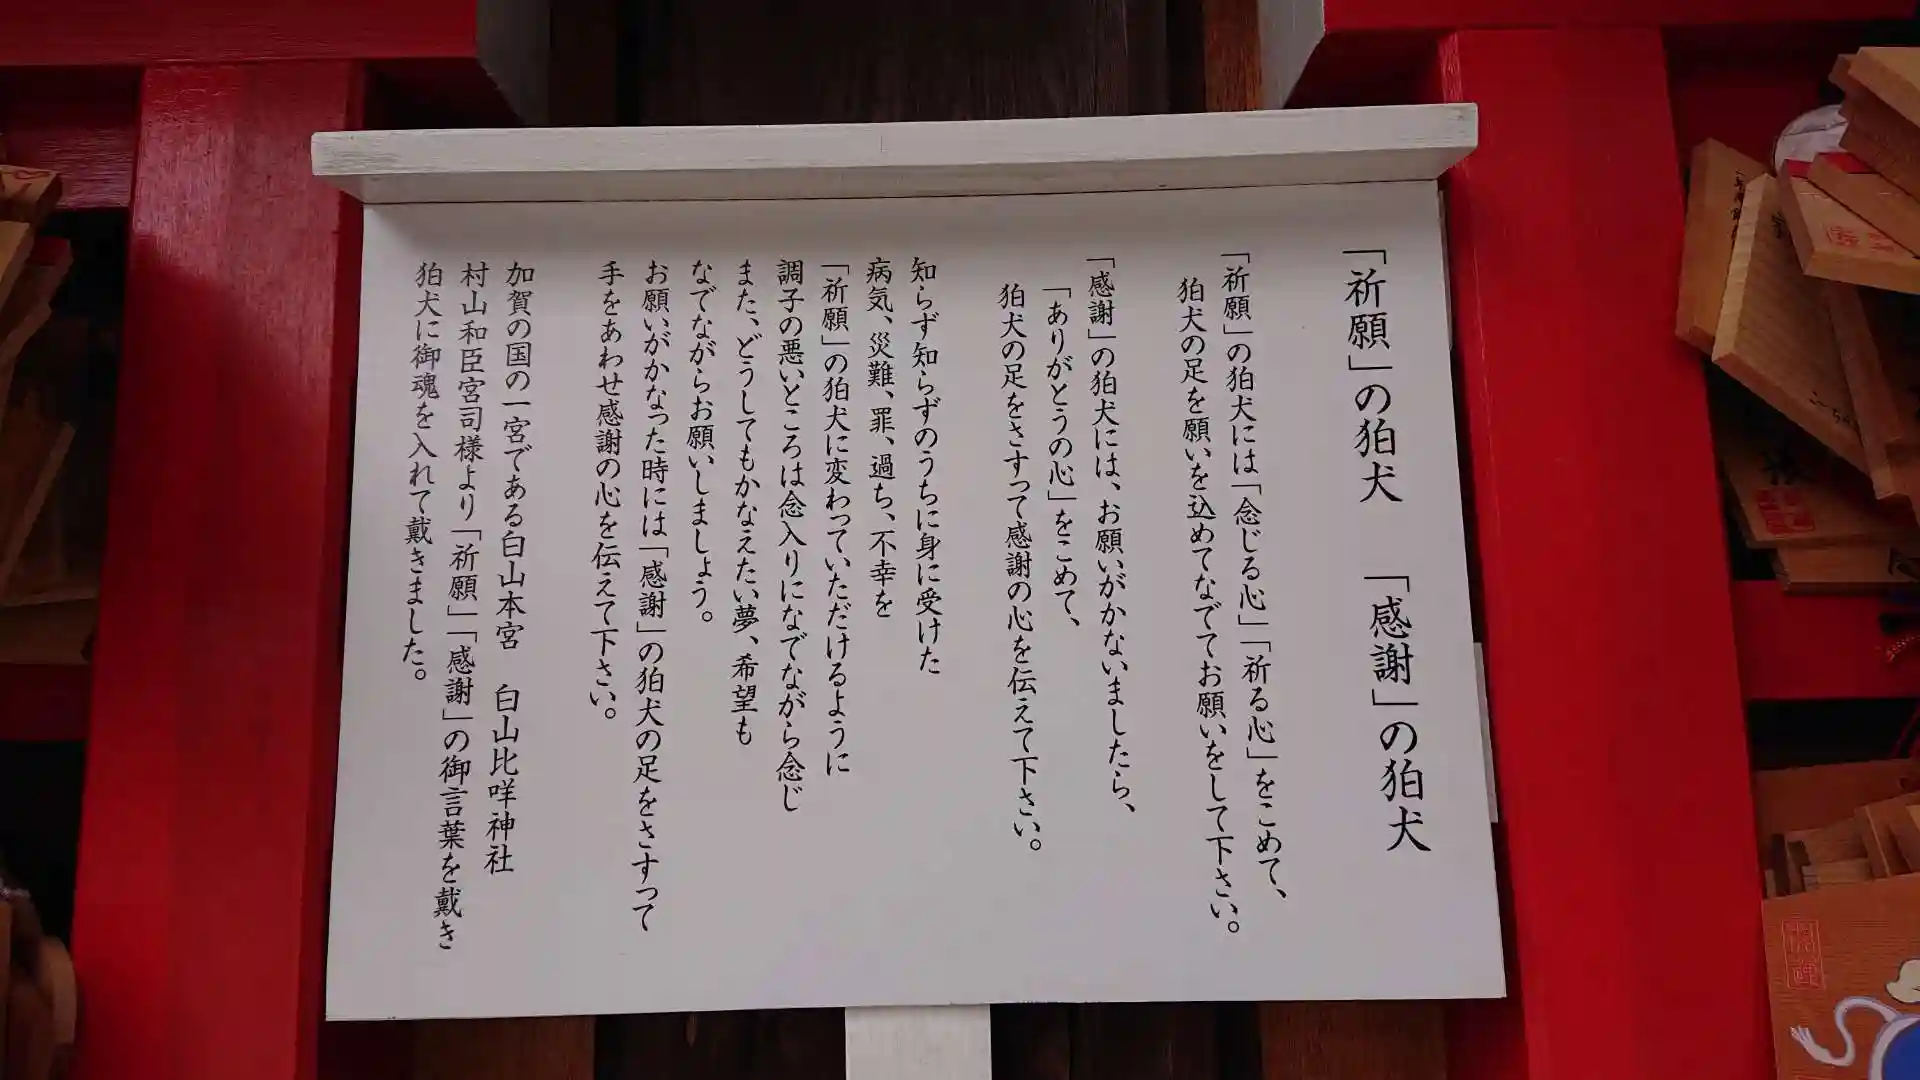 「祈願」の狛犬 「感謝」の狛犬
「祈願」の狛犬には「念じる心」「祈る心」をこめて、
狛犬の足を願いを込めてなでてお願いをして下さい。
「感謝」の狛犬には、お願いがかないましたら、
「ありがとうの心」をこめて、
狛犬の足をさすって感謝の心を伝えて下さい。
知らず知らずのうちに身に受けた
病気、災難、罪、過ち、不幸を
「祈願」の狛犬に変わっていただけるように
調子の悪いところは念入りになでながら念じ
また、どうしてもかなえたい夢、希望も
なでながらお願いしましょう。
お願いがかなった時には「感謝」の狛犬の足をさすって
手をあわせ感謝の心を伝えて下さい。
加賀の国の一宮である白山本宮 白山比咩神社
村山和臣宮司様より「祈願」「感謝」の御言葉を戴き
狛犬に御魂を入れて戴きました。